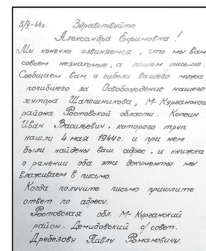 5/V-44г. Здравствуйте
Александра Ефимовна!
Мы конечно извиняемся, что мы вам
совсем незнакомые, а пишем письмо.
Сообщаем вам о гибели вашего мужа
погибшего за Освобождение нашего
хутора Шапошникова, М-Курганского
района Ростовской области. Копеин
Иван Васильевич, которого труп
нашли 4 мая 1944г. и при нем
были найдены Ваш адрес, и книжка
о ранении оба эти документы мы
вкладываем в письмо.
Когда получите письмо пришлите
ответ по адресу.
Ростовская обл. М-Курганский
район. Демидовский с/совет.
Павлу Романовичу